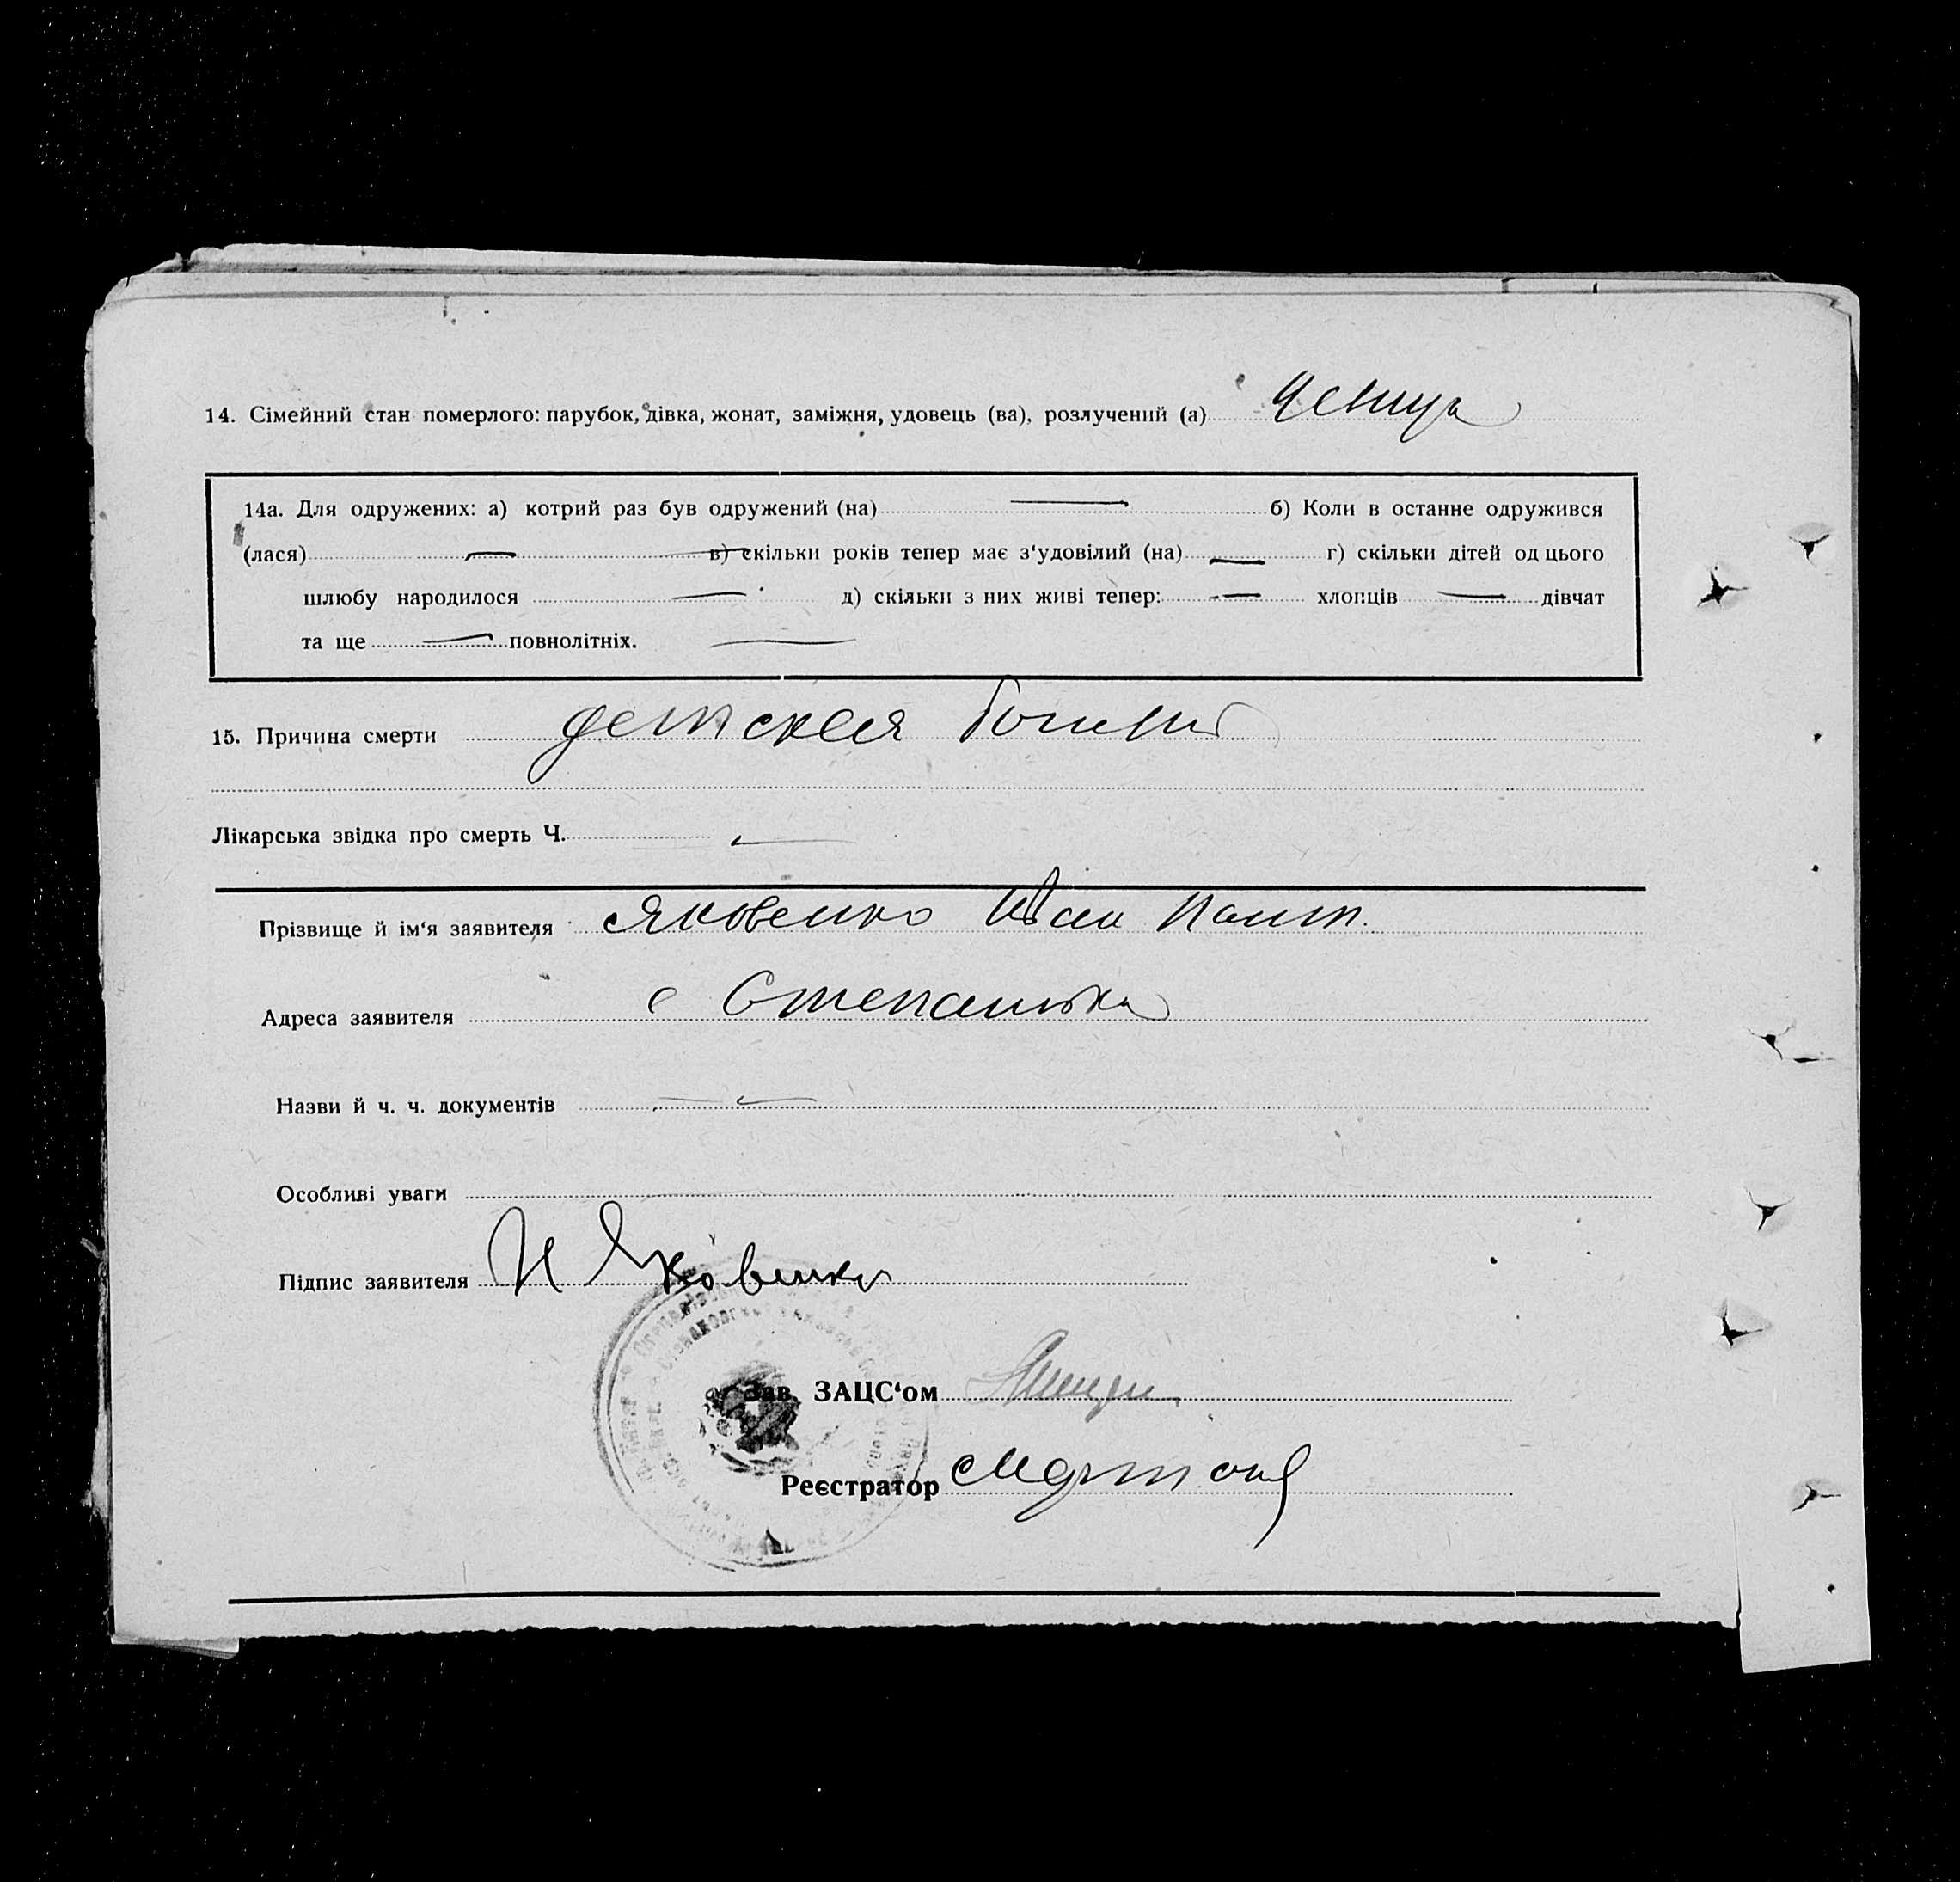 14. Сімейний стан померлого: парубок, дівка, жонат, заміжня, удовець (ва), розлучений (а)
14а. Для одружених: а) котрий раз був одружений (на) — б) Коли в останне одружився
(лася) — в) скільки років тепер має з‘удовілий (на) — г) скільки дітей од цього
шлюбу народилося — д) скільки з них живі тепер: — хлопців — дівчат
та ще — повнолітніх. —
15. Причина смерти детская
Лікарська звідка про смерть Ч. —
Прізвище й ім‘я заявителя Яковенко Иван
Адреса заявителя с Степановка
Назви й ч. ч. документів —
Особливі уваги
Підпис заявителя И Яковенко
Зав. ЗАЦС‘ом
Реєстратор